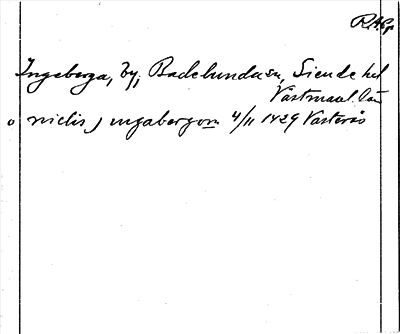 RAp
Ingeberga, by, Badelundasn, Siende hd
Västmanl. län
o niclis j ingabergom 4/11 1429 Västerås